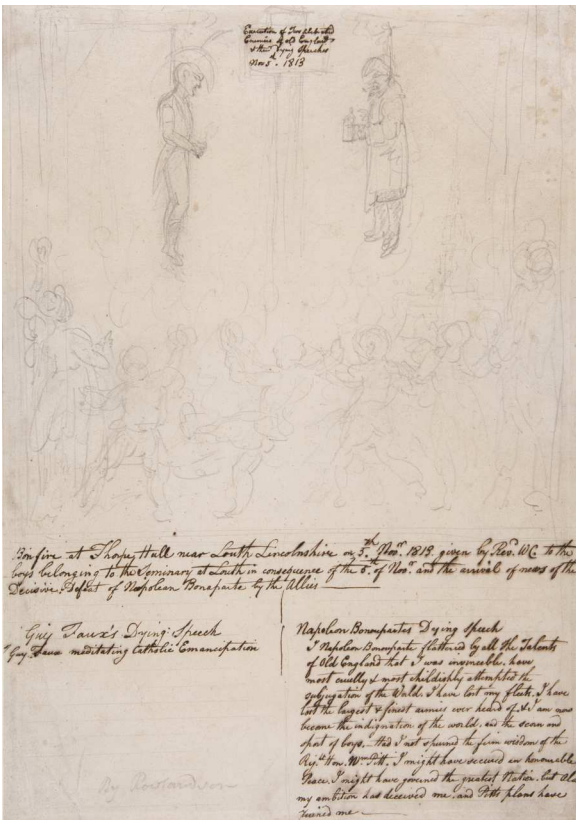 Execution of Two celebrated
Enemies of old England
& their Dying Speeches
Nov 5th. 1813
Bonfire at Thorpe Hall near Louth Lincolnshire on 5th. Novr. 1813 given by Revd. WC to the
boys belonging to the Seminary at Louth in consequence of the 5th. of Novr. and the arrival of news of the
Decisive Defeat of Napolean Boneparte by the Allies
Guy Faux's Dying Speech
Guy Faux meditating Catholic Emancipation
Napoleon Bonepartes Dying speech
I Napoleon Boneparte flattered by all the Talents
of Old England that I was invincible. have
most cruelly & most childishly attempted the
subjugation of the World. I have lost my fleets. I have
lost the largest & finest armies ever heard of. & I am now
become the indignation of the world. and the scorn and
sport of boys. Had I not spurned the firm wisdom of the
Rigt. Hon. Wm. Pitt. I might have secured an honourable
Peace. I might have governed the greatest Nation. but
my ambition has deceived me. and Pitts plans have
ruined me
By Rowlandson